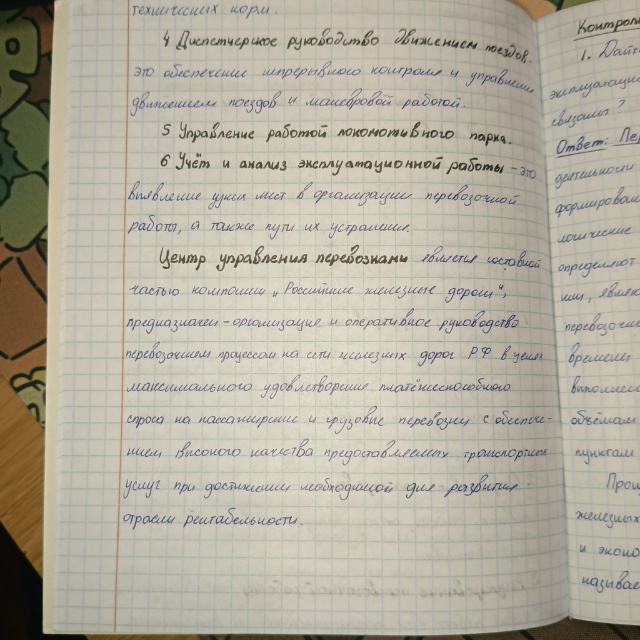 технических норм.
4 Диспетчерское руководство движением поездов.
это обеспечение непрерывного контроля и управления
движением поездов и маневровой работой.
5 Управление работой локомотивного парка.
6 Учёт и анализ эксплуатационной работы - это
выявление узких мест в организации перевозочной
работы, а также пути их устранения.
Центр управления перевозками является составной
частью компании „Российские железные дороги",
предназначен - организация и оперативное руководство
перевозочным процессом на сети железных дорог РФ в целях
максимального удовлетворения платёжеспособного
спроса на пассажирские и грузовые перевозки с обеспече-
нием высокого качества предоставляемых транспортных
услуг при достижении необходимой для развития
отрасли рентабельности.
Контроль
1. Дайте
эксплуатацио
связаны?
Ответ: Пер
деятельности
формирован
определяют
ими, явля
перевозочн
времени
выполнен
объёмам
пунктам
Прои
железных
и эконо
называе